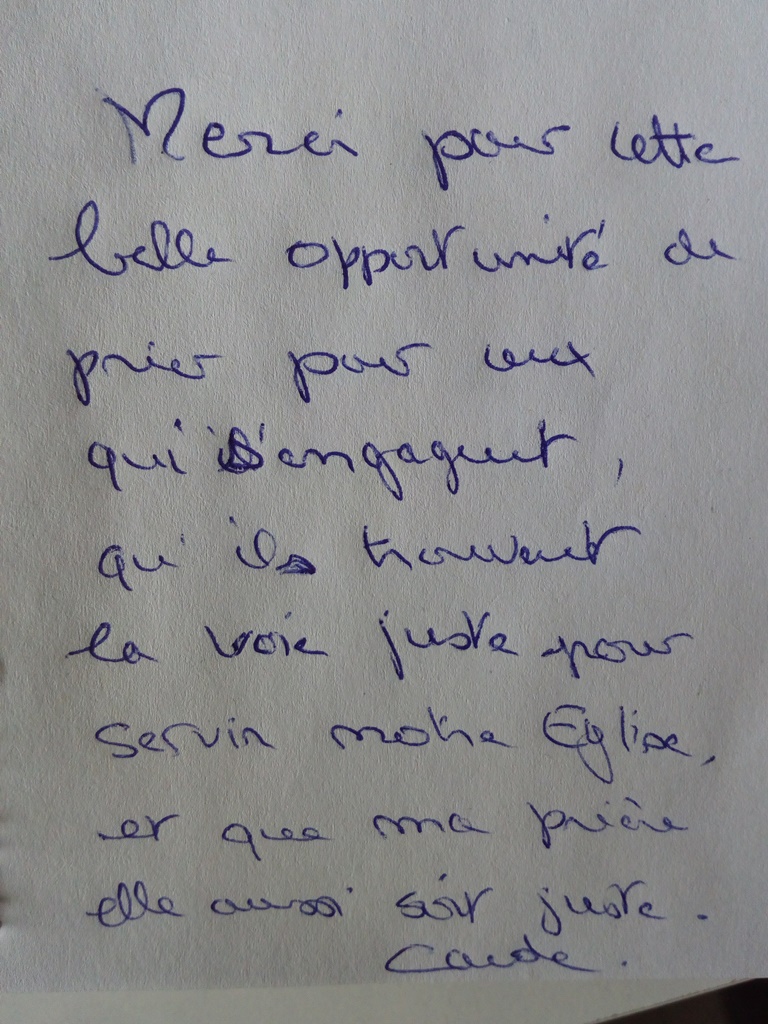 Merci pour cette
belle opportunité de
prier pour ceux
qui s'engagent,
qu'ils trouvent
la voie juste pour
servir notre Eglise,
et que ma prière
elle aussi soit juste.